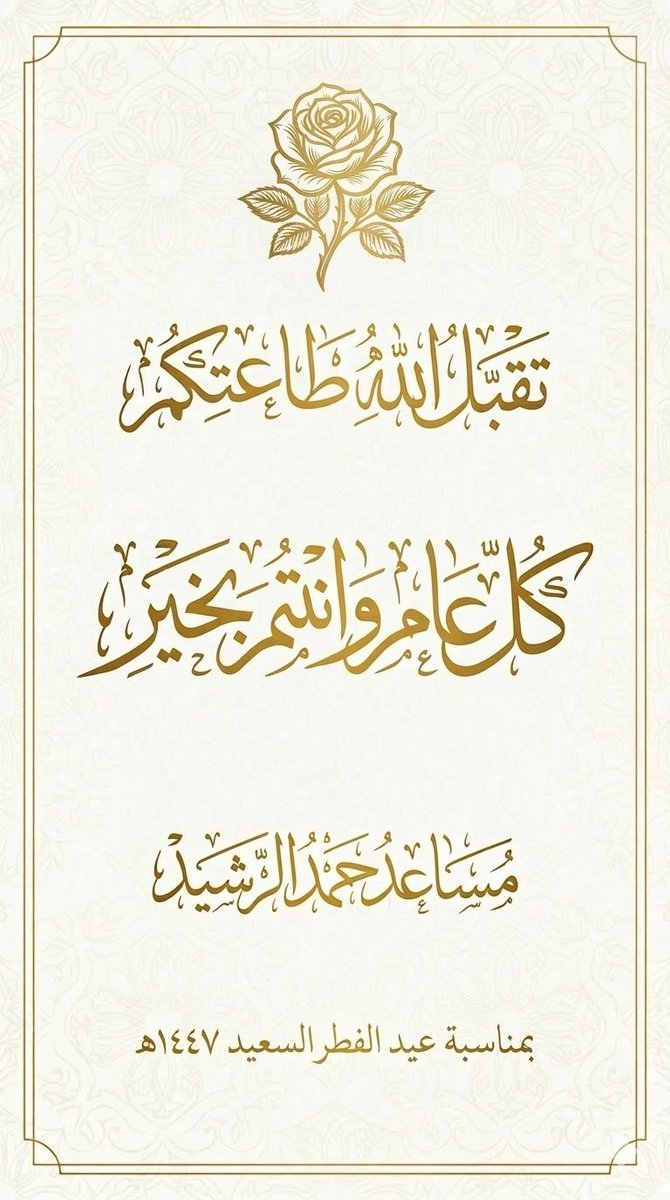 تَقَبَّلُ اللهُ طَاعَتِكُمْ
كُلُّ عَامٍ وَانْتُمْ بِخَيْرِ
مُسَاعِدُ حَمَدُ الرَّشِيدْ
بمناسبة عيد الفطر السعيد ١٤٤٧هـ